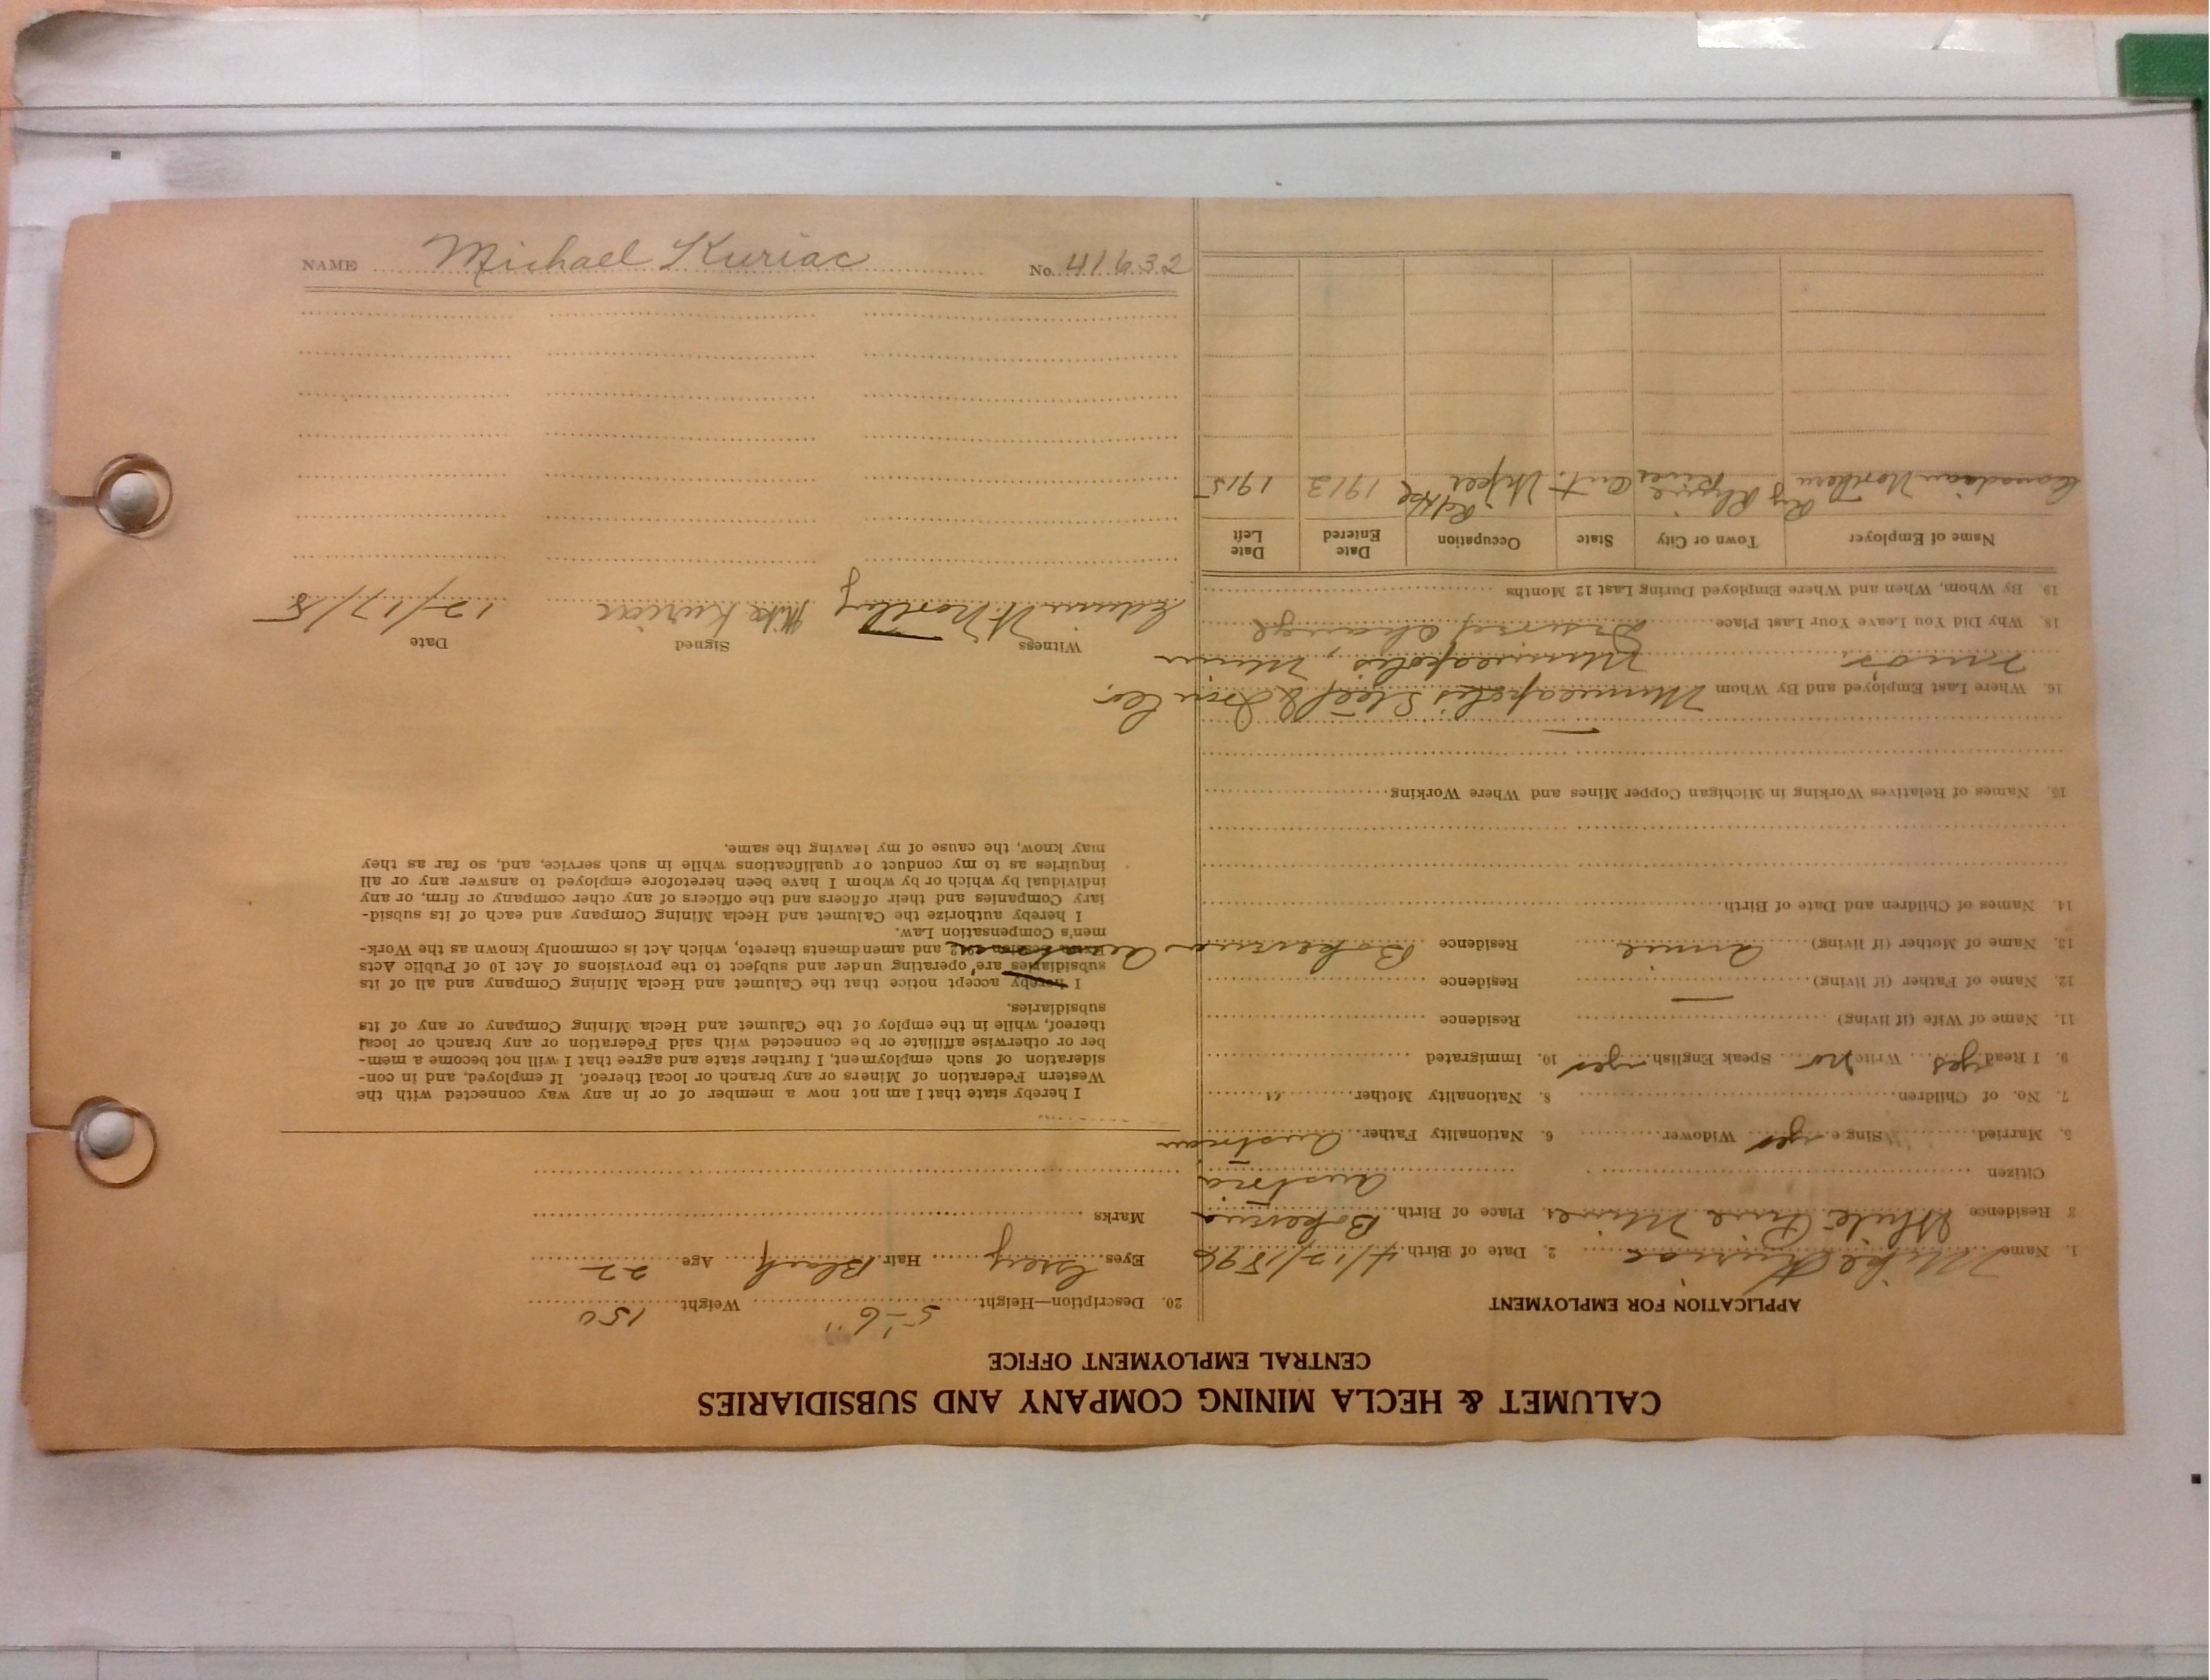 NAME Michael Kuriac No. 41632
CALUMET & HECLA MINING COMPANY AND SUBSIDIARIES
CENTRAL EMPLOYMENT OFFICE
APPLICATION FOR EMPLOYMENT
1. Name Mike Kuriac 2. Date of Birth 4/12/1896
3 Residence White Pine Mine 4. Place of Birth Bohemia
Austria
Citizen
5. Married Single yes Widower 6. Nationality Father Austrian
7. No. of Children 8. Nationality Mother "
9. I Read yes Write no Speak English yes 10. Immigrated
11. Name of Wife (if living) Residence
12. Name of Father (if living) — Residence
13. Name of Mother (if living) Annie Residence Bohemia Austria
14. Names of Children and Date of Birth
15. Names of Relatives Working in Michigan Copper Mines and Where Working
—
16. Where Last Employed and By Whom Minneapolis Steel & Iron Co.
Minneapolis, Minn
18. Why Did You Leave Your Last Place. Desired change
19. By Whom, When and Where Employed During Last 12 Months
Name of Employer Town or City State Occupation Date Entered Date Left
Canadian Northern Ry Ont. 1913 1915
20. Description—Height 5'-6" Weight 150
Eyes Grey Hair Black Age 22
Marks
I hereby state that I am not now a member of or in any way connected with the
Western Federation of Miners or any branch or local thereof. If employed, and in con-
sideration of such employment, I further state and agree that I will not become a mem-
ber or otherwise affiliate or be connected with said Federation or any branch or local
thereof, while in the employ of the Calumet and Hecla Mining Company or any of its
subsidiaries.
I hereby accept notice that the Calumet and Hecla Mining Company and all of its
subsidiaries are operating under and subject to the provisions of Act 10 of Public Acts
Session 1912 and amendments thereto, which Act is commonly known as the Work-
men's Compensation Law.
I hereby authorize the Calumet and Hecla Mining Company and each of its subsid-
iary Companies and their officers and the officers of any other company or firm, or any
individual by which or by whom I have been heretofore employed to answer any or all
inquiries as to my conduct or qualifications while in such service, and, so far as they
may know, the cause of my leaving the same.
Witness Signed Date
Edwin Mike Kuriac 12/17/18